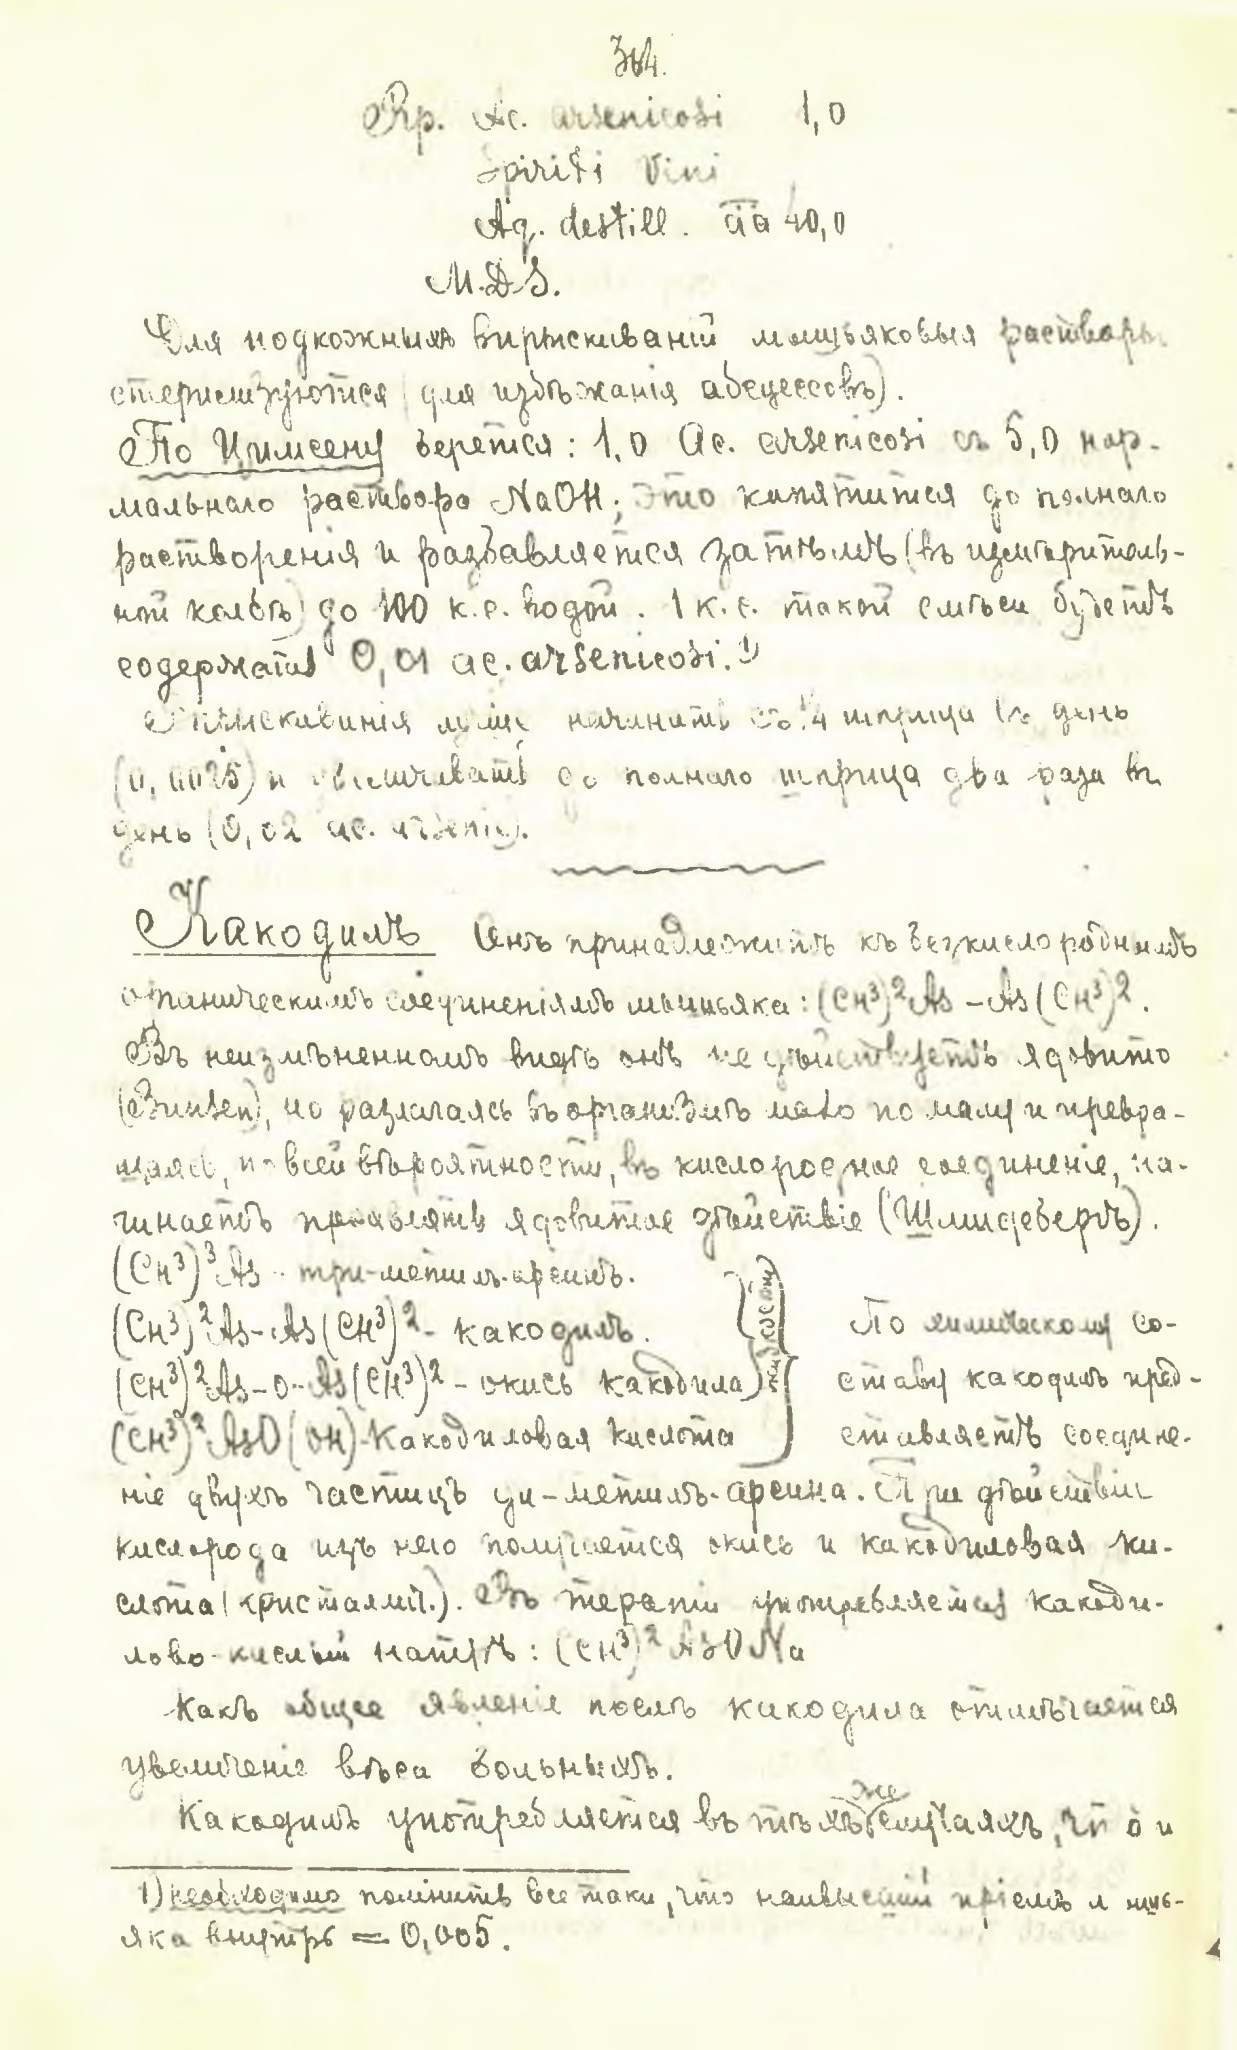 364.
Rp. Ac. arsenicosi 1,0
Spiriti Vini
Aq. destill. āā 40,0
M.D.S.
Для подкожныхъ впрыскиваній мышьяковыя растворы
стерилизуются (для избѣжанія абсцессовъ).
По Цимсену берется: 1,0 Ac. arsenicosi съ 5,0 нор-
мальнаго раствора NaOH; это кипятится до полнаго
растворенія и разбавляется затѣмъ (въ измѣритель-
ной колбѣ) до 100 к.с. водой. 1 к.с. такой смѣси будетъ
содержать 0,01 ac. arsenicosi. 1)
Впрыскиванія лучше начинать съ 1/4 шприца въ день
(0,0025) и увеличивать до полнаго шприца два раза въ
день (0,02 ac. arsenic).
Какодилъ Онъ принадлежитъ къ безкислороднымъ
органическимъ соединеніямъ мышьяка: (CH³)²As – As(CH³)².
Въ неизмѣненномъ видѣ онъ не дѣйствуетъ ядовито
(Bunsen), но разлагаясь въ организмѣ мало по малу и превра-
щаясь, по всей вѣроятности, въ кислородное соединеніе, на-
чинаетъ проявлять ядовитое дѣйствіе (Шмидебергъ).
(CH³)³As - три-метилъ-арсинъ.
(CH³)²As-As(CH³)² - какодилъ.
(CH³)²As-O-As(CH³)² - окись какодила
(CH³)²AsO(OH)-Какодиловая кислота
жидкости
По химическому со-
ставу какодилъ пред-
ставляетъ соедине-
ніе двухъ частицъ ди-метилъ-арсина. При дѣйствіи
кислорода изъ него получается окись и какодиловая ки-
слота (кристаллич.). Въ терапіи употребляется какоди-
лово-кислый натръ: (CH³)²AsONa
Какъ общее явленіе послѣ какодила отмѣчается
увеличеніе вѣса больныхъ.
Какодилъ употребляется въ тѣхъ же случаяхъ, что и
1) необходимо помнить все таки, что наивысшій пріемъ мышь-
яка внутрь = 0,005.